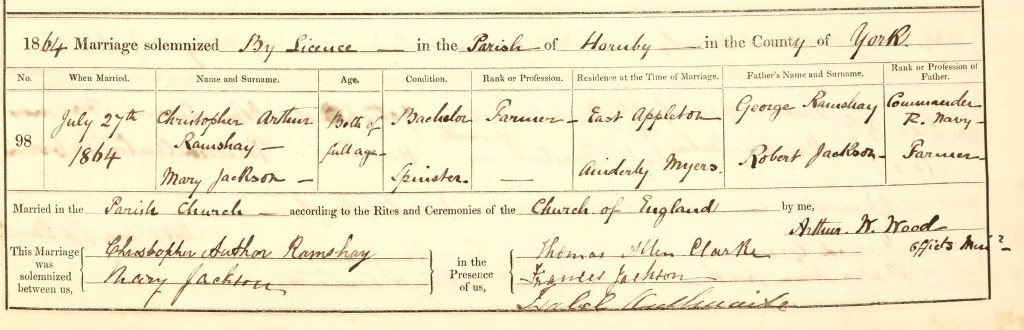 1864 Marriage solemnized By Licence — in the Parish of Hornby — in the County of York.
No. When Married. Name and Surname. Age. Condition. Rank or Profession. Residence at the Time of Marriage. Father's Name and Surname. Rank or Profession of Father.
98 July 27th 1864 Christopher Arthur Ramshay — Both of full age — Bachelor Farmer — East Appleton George Ramshay Commander R. Navy —
Mary Jackson — Spinster — — Ainderby Myers. Robert Jackson — Farmer —
Married in the Parish Church — according to the Rites and Ceremonies of the Church of England by me,
Arthur W. Wood
This Marriage was solemnized between us, Christopher Author Ramshay
Mary Jackson
in the Presence of us, Thomas Allen Clarke
Frances Jackson
Isabel